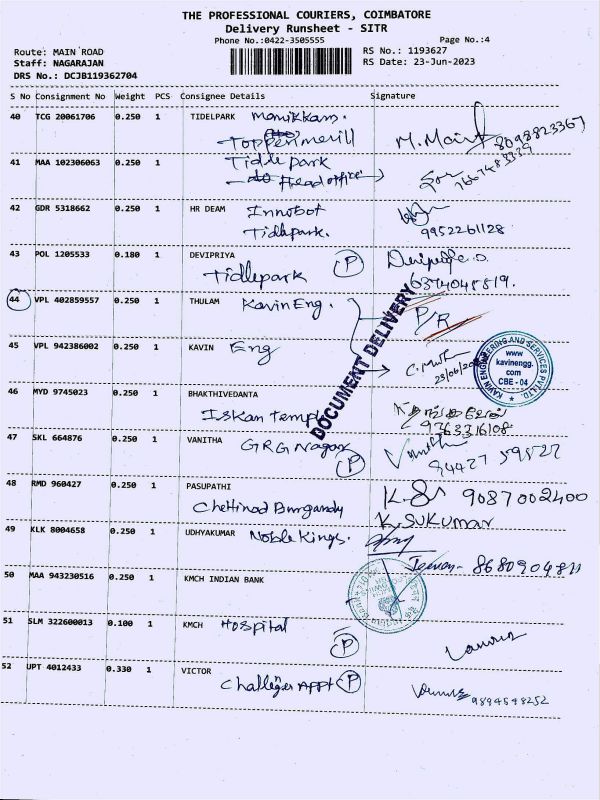 THE PROFESSIONAL COURIERS, COIMBATORE
Delivery Runsheet - SITR
Phone No.:0422-3505555 Page No.:4
Route: MAIN ROAD RS No.: 1193627
Staff: NAGARAJAN RS Date: 23-Jun-2023
DRS No.: DCJB119362704
S No Consignment No Weight PCS Consignee Details Signature
40 TCG 20061706 0.250 1 TIDELPARK Manikkam.
8098823367
41 MAA 102306063 0.250 1 Tidle park
Head office
42 GDR 5318662 0.250 1 HR DEAM Innobot
Tidlepark. 9952261128
43 POL 1205533 0.180 1 DEVIPRIYA P
Tidlepark 6374048519.
44 VPL 402859557 0.250 1 THULAM Kavin Eng. P/R
DOCUMENT DELIVERY
45 VPL 942386002 0.250 1 KAVIN Eng
KAVIN ENGINEERING AND SERVICES PVT LTD.
www.
kavinengg.
com
CBE - 04
46 MYD 9745023 0.250 1 BHAKTHIVEDANTA
Iskan Temple 9363316108
47 SKL 664876 0.250 1 VANITHA GRG Nagar P
94427 59522
48 RMD 960427 0.250 1 PASUPATHI
Chettinad Burgandy 9087002400
K. SUKUMAR
49 KLK 8004658 0.250 1 UDHYAKUMAR Noble Kings.
50 MAA 943230516 0.250 1 KMCH INDIAN BANK
51 SLM 322600013 0.100 1 KMCH Hospital P
52 UPT 4012433 0.330 1 VICTOR
Challenger Appt P 9894548252